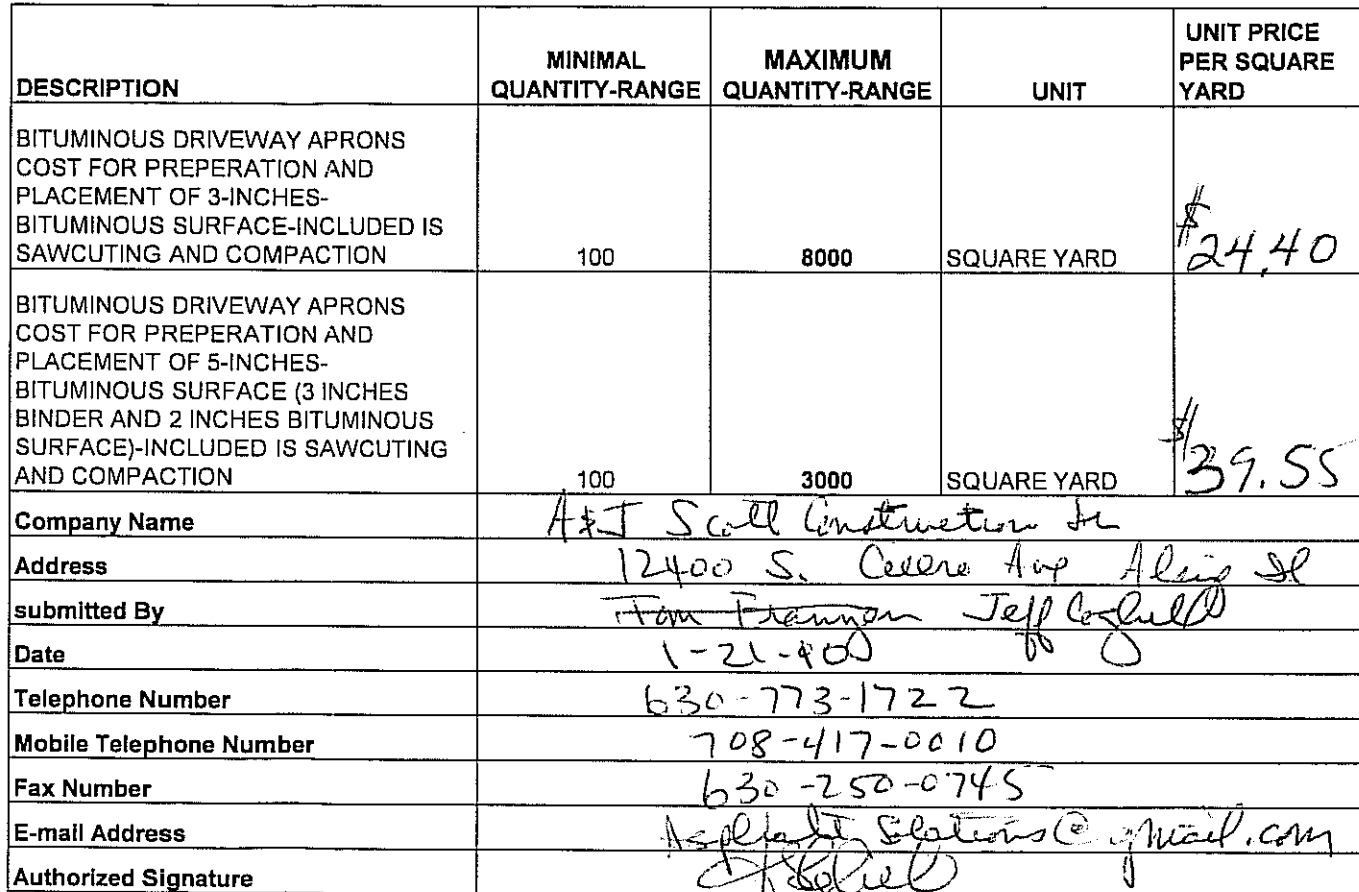 DESCRIPTION
MINIMAL QUANTITY-RANGE
MAXIMUM QUANTITY-RANGE
UNIT
UNIT PRICE PER SQUARE YARD
BITUMINOUS DRIVEWAY APRONS
COST FOR PREPERATION AND
PLACEMENT OF 3-INCHES-
BITUMINOUS SURFACE-INCLUDED IS
SAWCUTING AND COMPACTION
100
8000
SQUARE YARD
$24.40
BITUMINOUS DRIVEWAY APRONS
COST FOR PREPERATION AND
PLACEMENT OF 5-INCHES-
BITUMINOUS SURFACE (3 INCHES
BINDER AND 2 INCHES BITUMINOUS
SURFACE)-INCLUDED IS SAWCUTING
AND COMPACTION
100
3000
SQUARE YARD
$39.55
Company Name A&J Scott Construction
Address 12400 S. Cicero Ave Alsip Il
submitted By Jeff
Date 1-21-
Telephone Number 630-773-1722
Mobile Telephone Number 708-417-0010
Fax Number 630-250-0745
E-mail Address @gmail.com
Authorized Signature